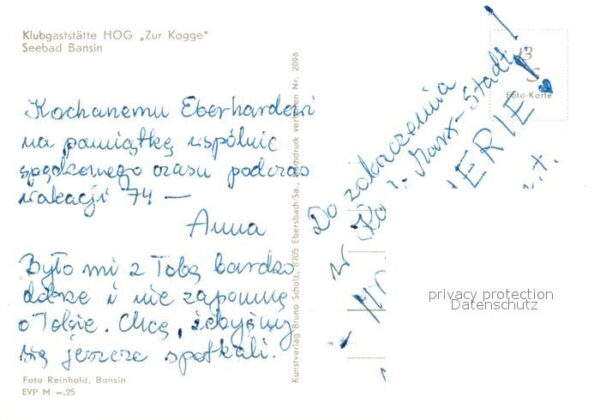 Klubgaststätte HOG „Zur Kogge"
Seebad Bansin
Kochanemu Eberhardowi
na pamiątkę wspólnie
spędzonego czasu podczas
wakacji 74 —
Anna
Było mi z Tobą bardzo
dobrze i nie zapomnę
o Tobie. Chcę, żebyśmy
się jeszcze spotkali.
Foto Reinhold, Bansin
EVP M –.25
Kunstverlag Bruno Scholz, 8705 Ebersbach/Sa., Nr. 2096
Do zobaczenia
w Marx-Stadt!
ERIE!
Foto-Karte
privacy protection
Datenschutz